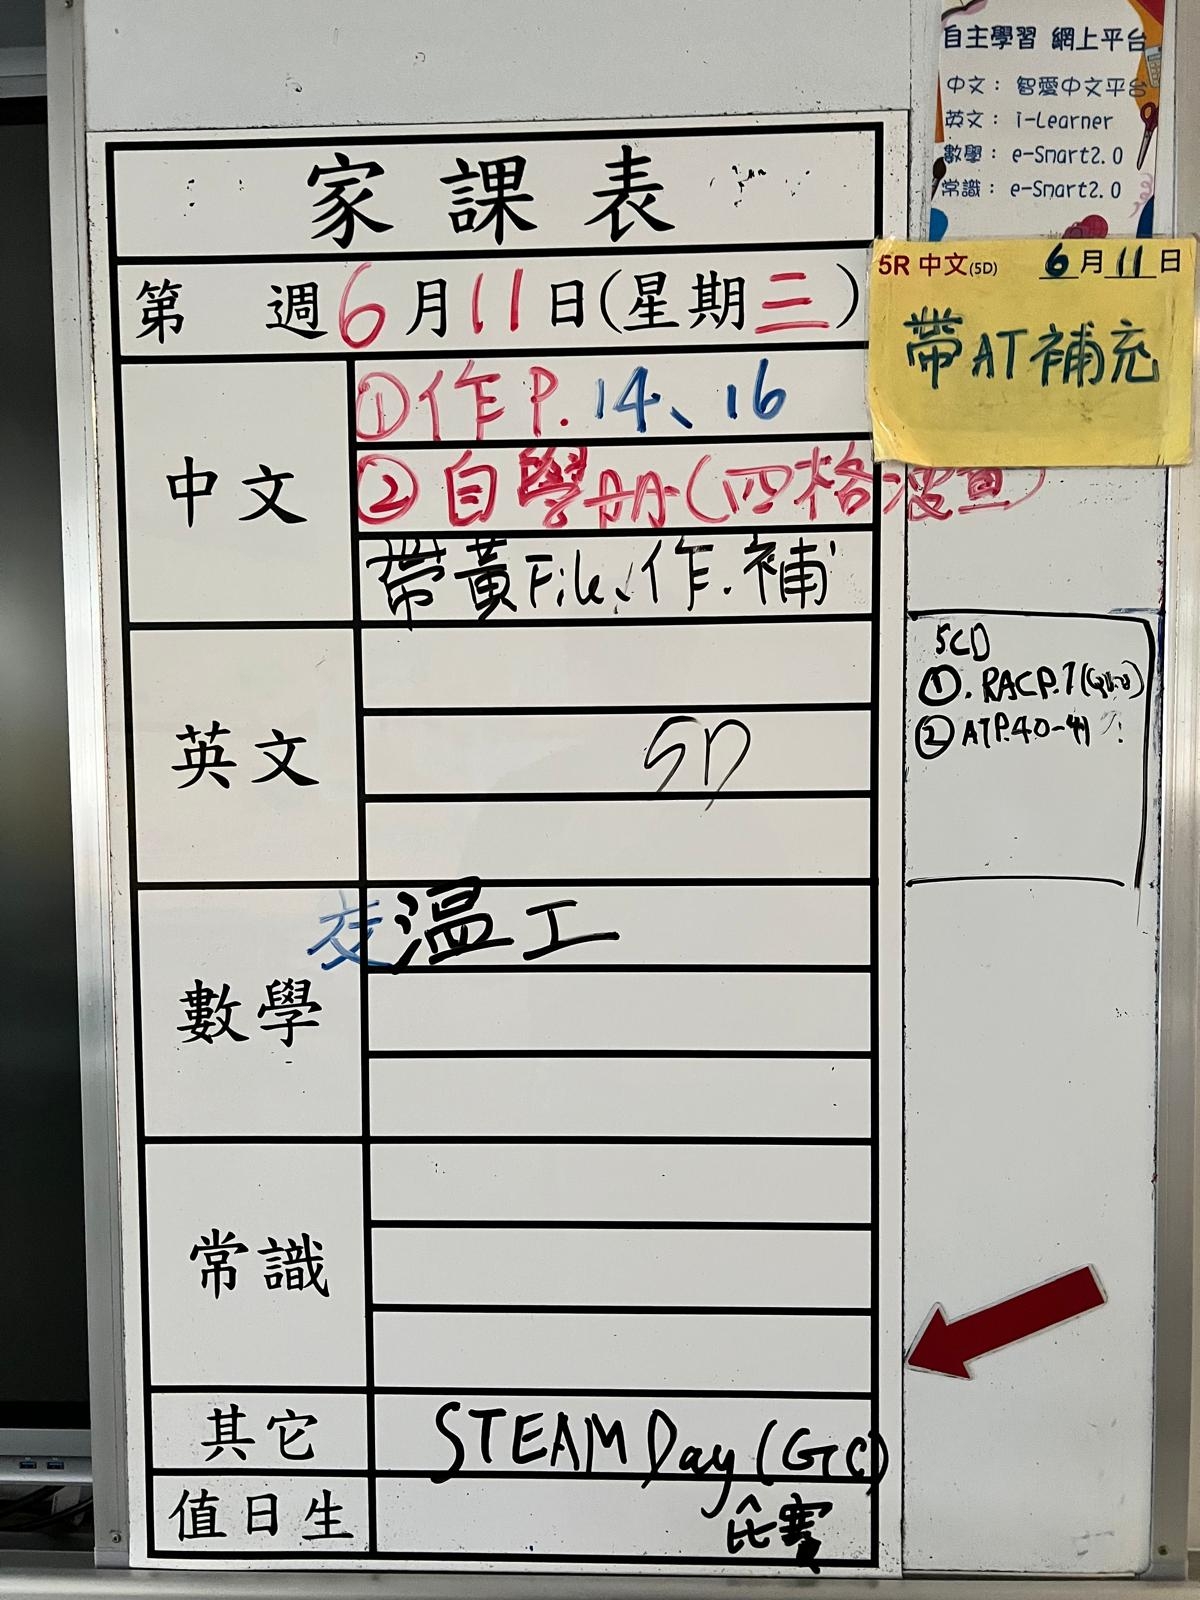 自主學習 網上平台
中文： 智愛中文平台
英文： i-Learner
數學： e-Smart2.0
常識： e-Smart2.0
家課表
第 週6月11日(星期三)
5R 中文(5D) 6月11日
帶AT補充
中文
①作P.14、16
②自學册(四格漫畫)
帶黃File、作.補
英文
5D
5CD
①.RACP.7
②ATP.40-41
數學
交溫工
常識
其它
STEAM Day(GC)
比賽
值日生